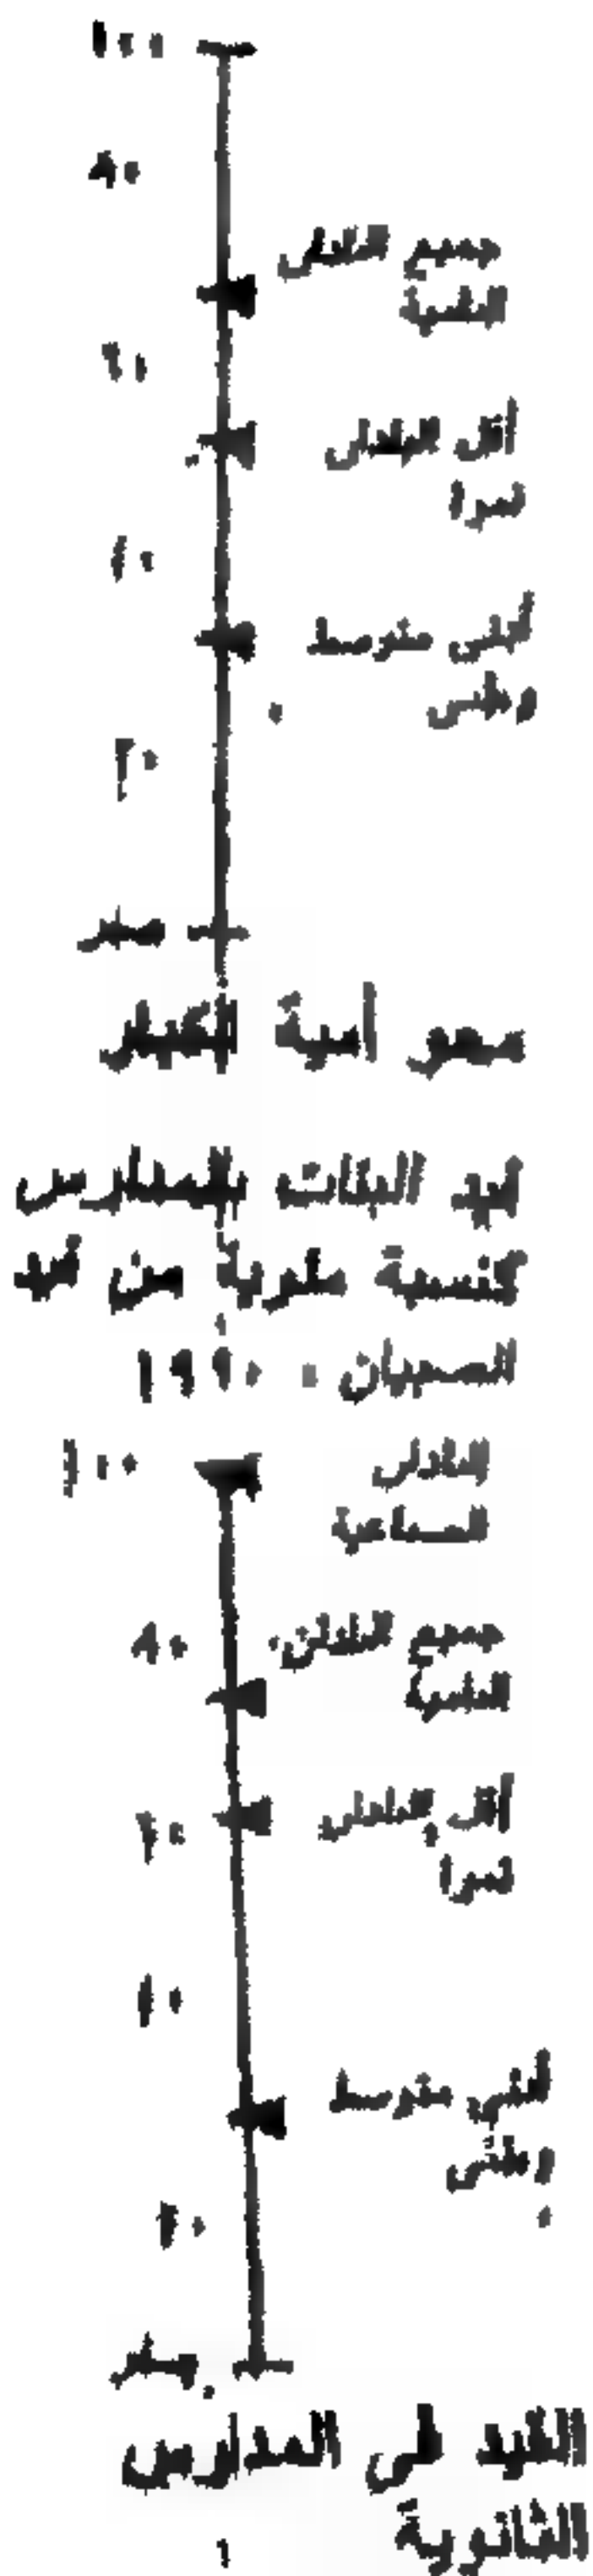 ١٠٠
٨٠
جميع البلدان
النامية
٦٠
أقل البلدان
نموا
٤٠
أدنى متوسط
وطنى
٢٠
صفر
محو أمية الكبار
قيد البنات بالمدارس
كنسبة مئوية من قيد
الصبيان ، ١٩٩٠
١٠٠
البلدان
الصناعية
٨٠
جميع البلدان
النامية
٦٠
أقل البلدان
نموا
٤٠
أدنى متوسط
وطنى
٢٠
صفر
القيد فى المدارس
الثانوية